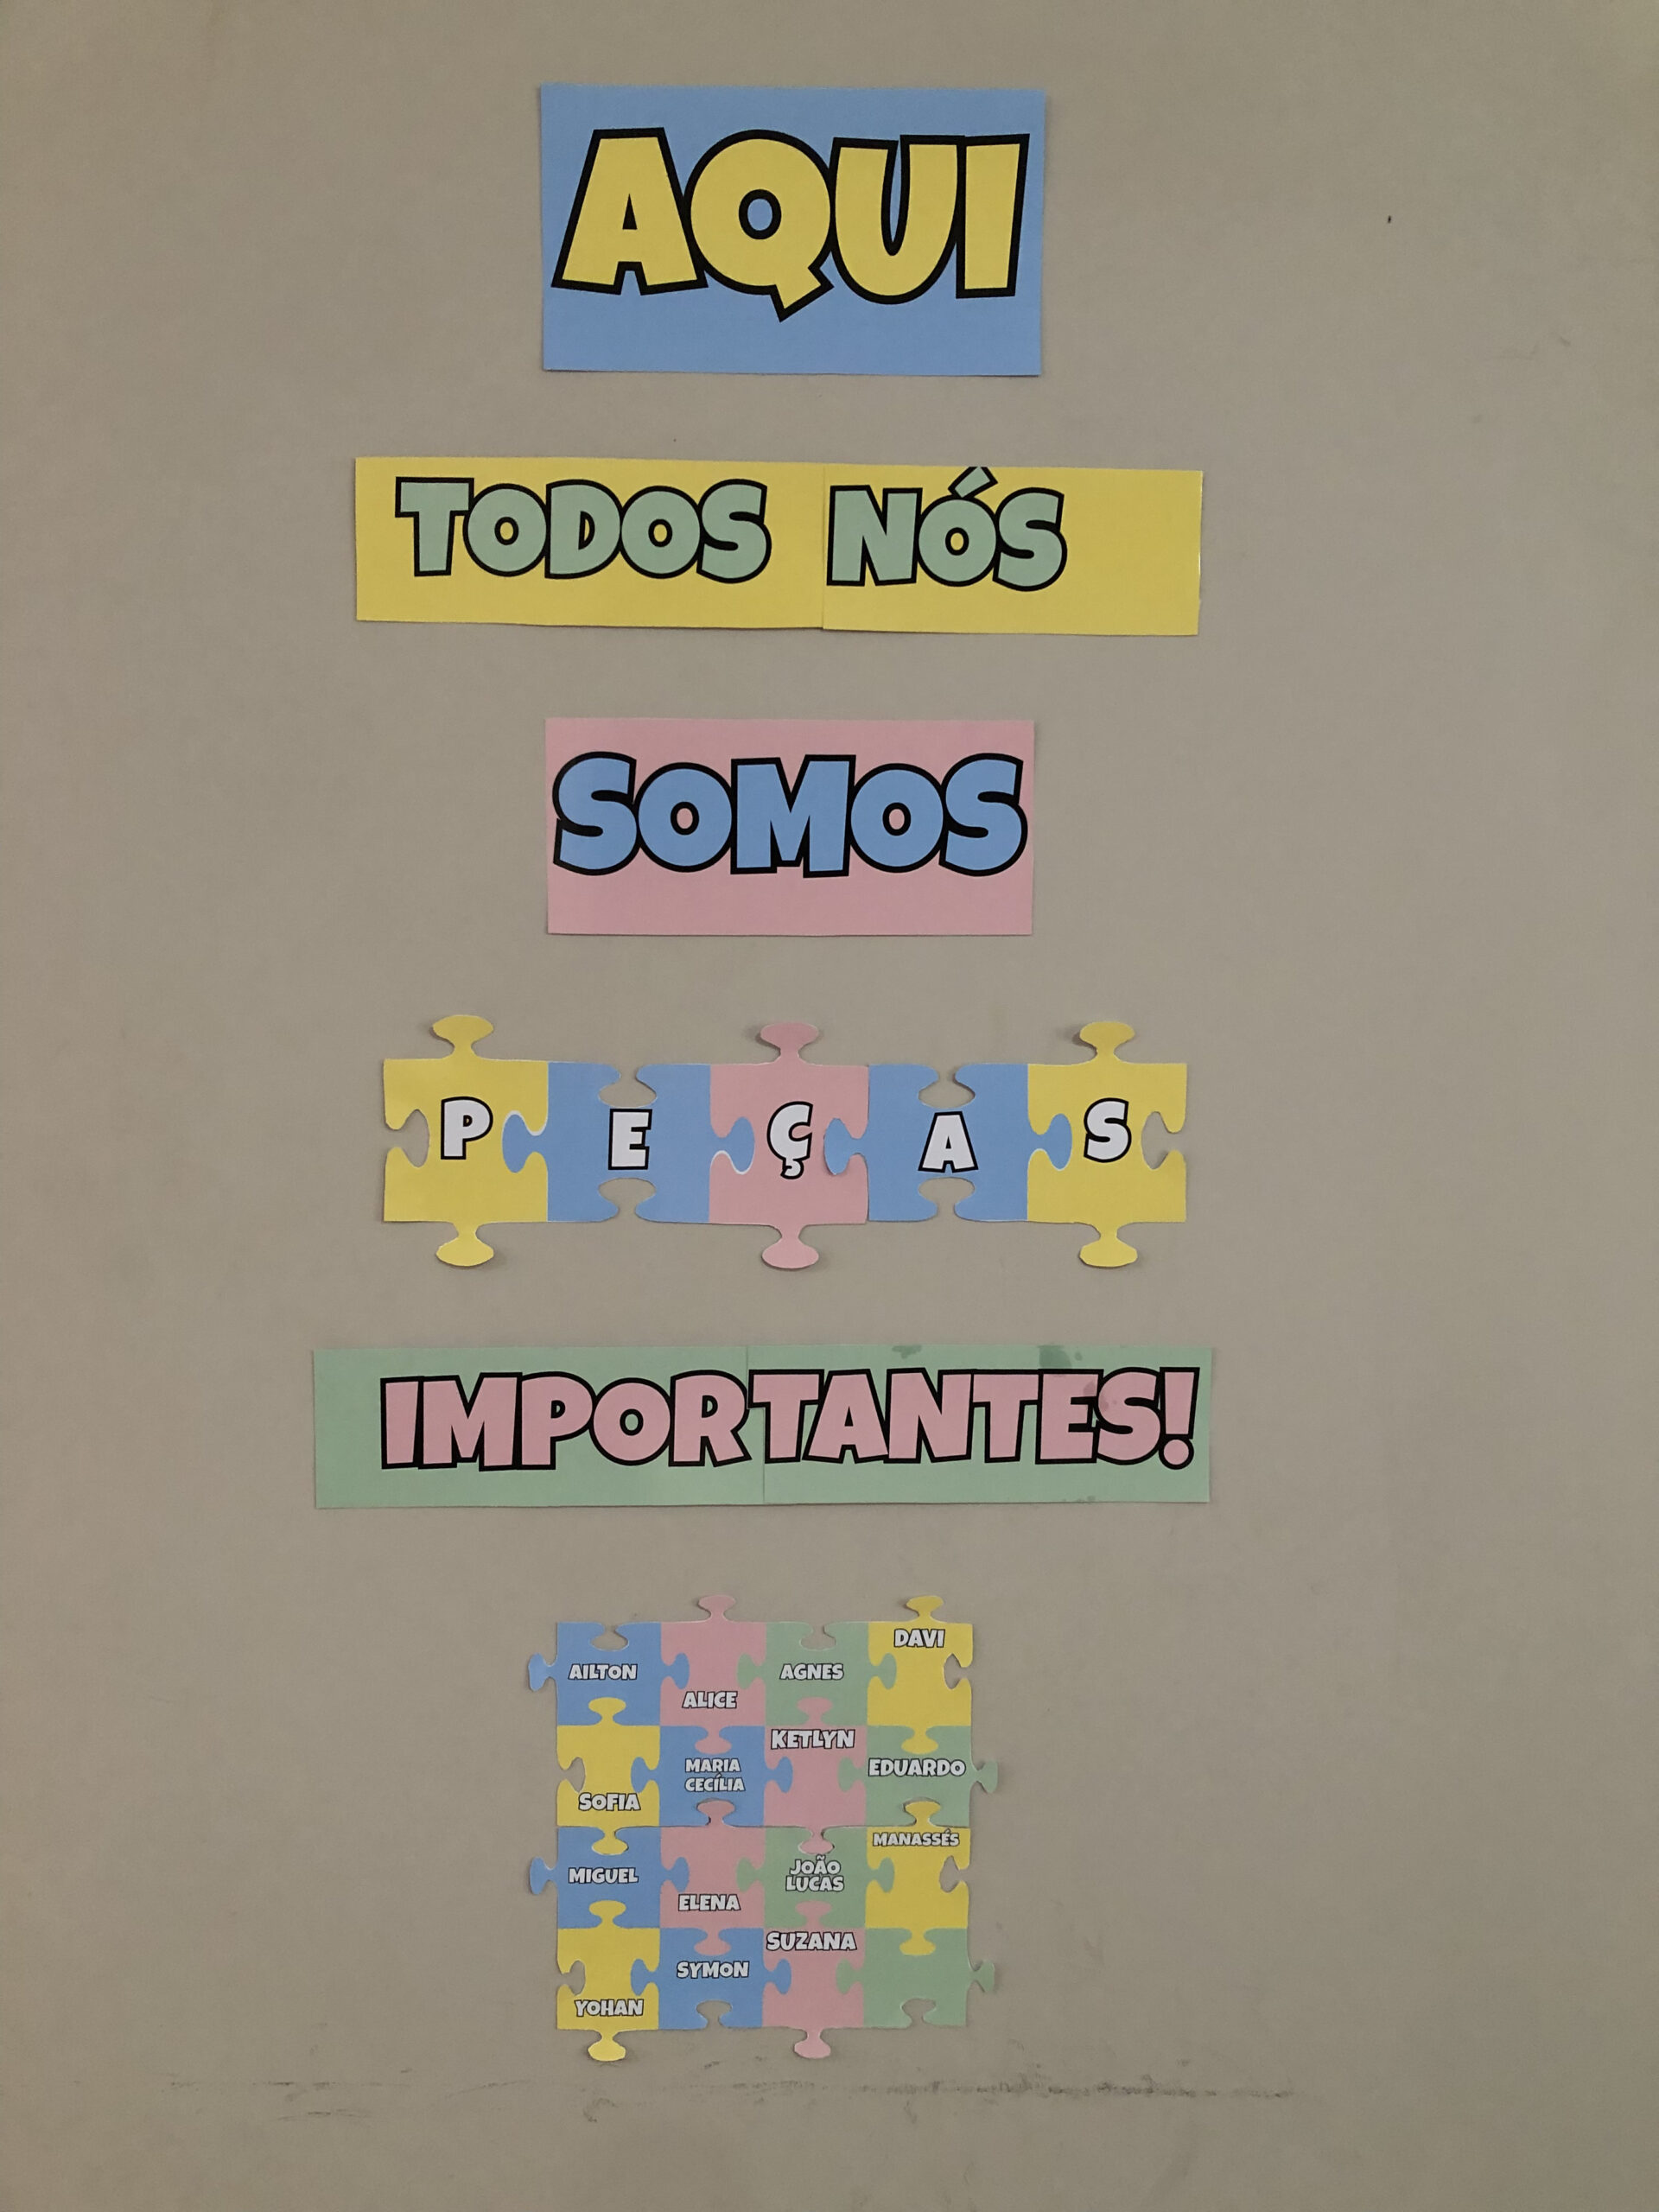 AQUI
TODOS NÓS
SOMOS
PEÇAS
IMPORTANTES!
AILTON
ALICE
AGNES
DAVI
SOFIA
MARIA
CECÍLIA
KETLYN
EDUARDO
MIGUEL
ELENA
JOÃO
LUCAS
MANASSÉS
YOHAN
SYMON
SUZANA